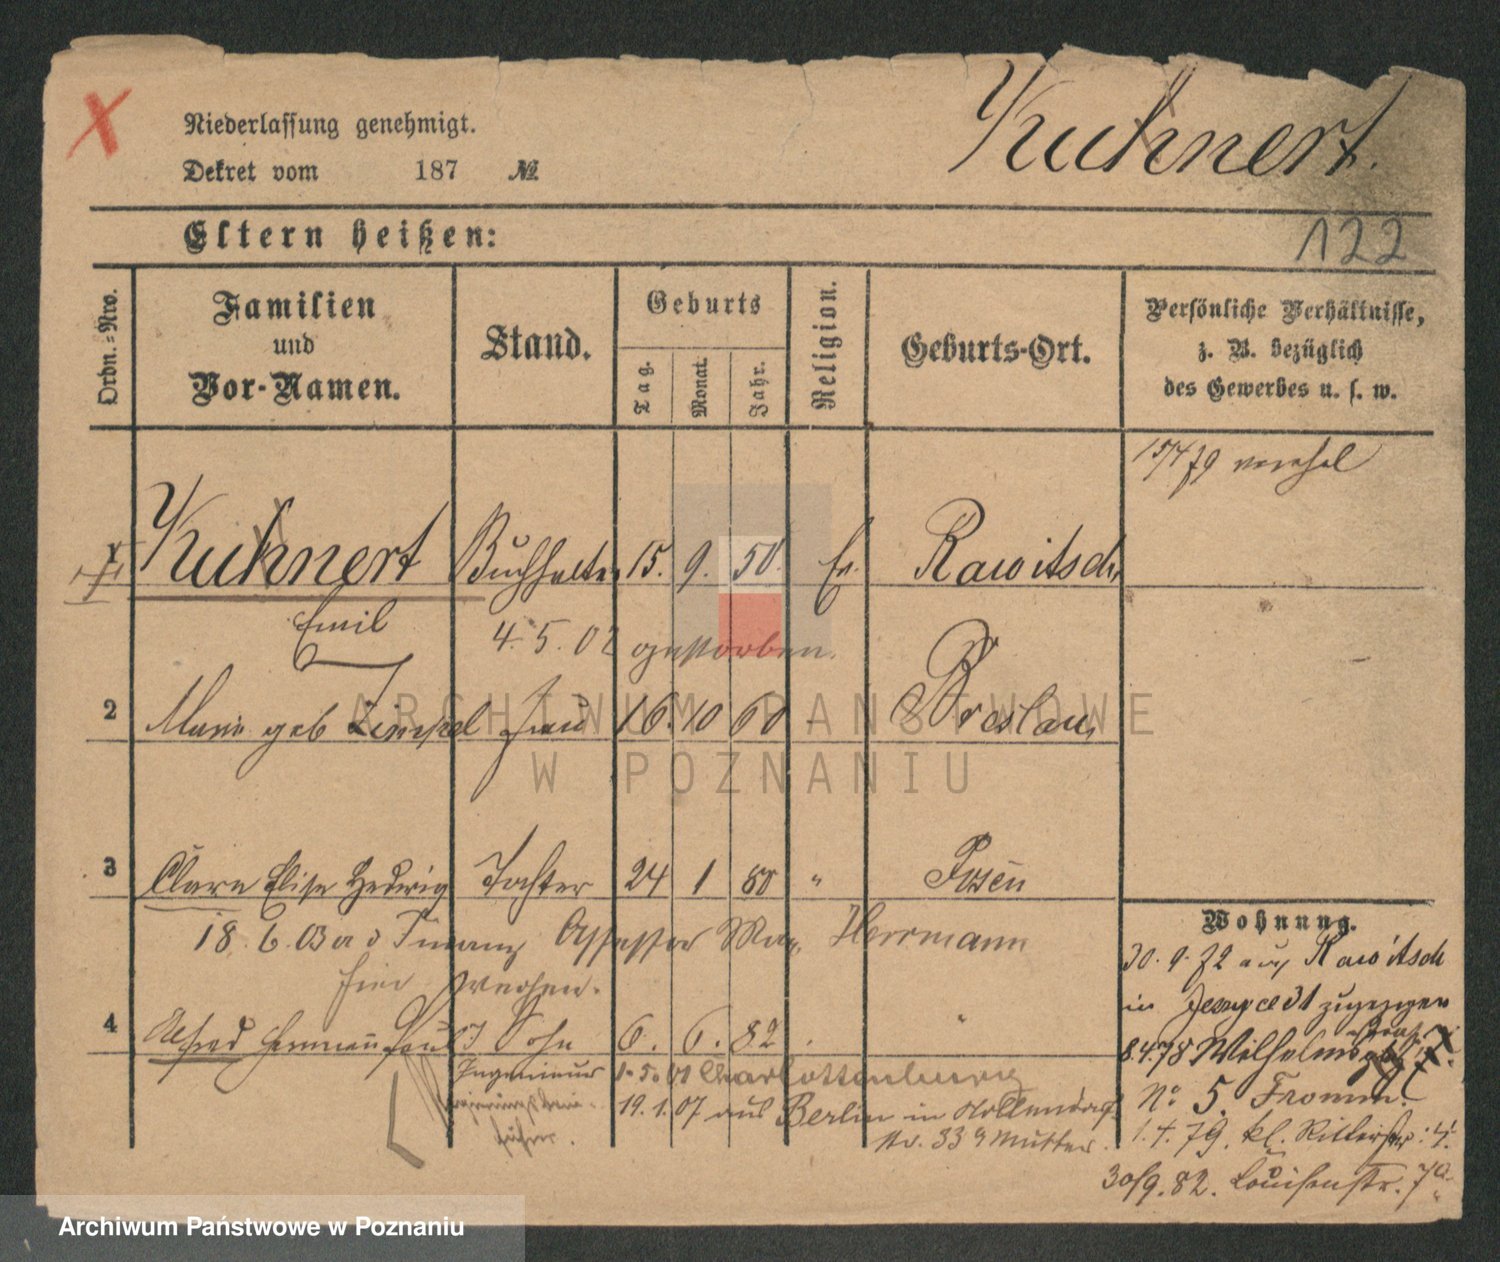 Niederlassung genehmigt.
Kuhnert.
Dekret vom 187 №
Eltern heißen:
122
Ordn.-Nro.
Familien
und
Vor-Namen.
Stand.
Geburts
Tag.
Monat.
Jahr.
Religion.
Geburts-Ort.
Persönliche Verhältnisse,
z. B. bezüglich
des Gewerbes u. s. w.
15/4 79
Kuhnert Buchhalter 15. 9. 50. Ev. Rawitsch
Emil 4. 5. 02 gestorben.
2 Marie geb Frau 16. 10 60 Breslau
3 Clara Elise Hedwig Tochter 24 1 80 " Posen
18. 6. 03 Assessor Max Herrmann
hier
4 Alfred Hermann Paul Sohn 6. 6. 82 "
Ingenieur 1. 5. 01 Charlottenburg
19. 1. 07 aus Berlin in Hollendorf
str. 33 Mutter.
führer.
Wohnung.
30. 9. 72 aus Rawitsch
in 31 zugezogen
8.4.78 Wilhelms
No 5. Fromm.
1. 4. 79. kl. Ritterstr. 4.
30/9. 82. Louisenstr. 7a
ARCHIWUM PAŃSTWOWE
W POZNANIU
Archiwum Państwowe w Poznaniu